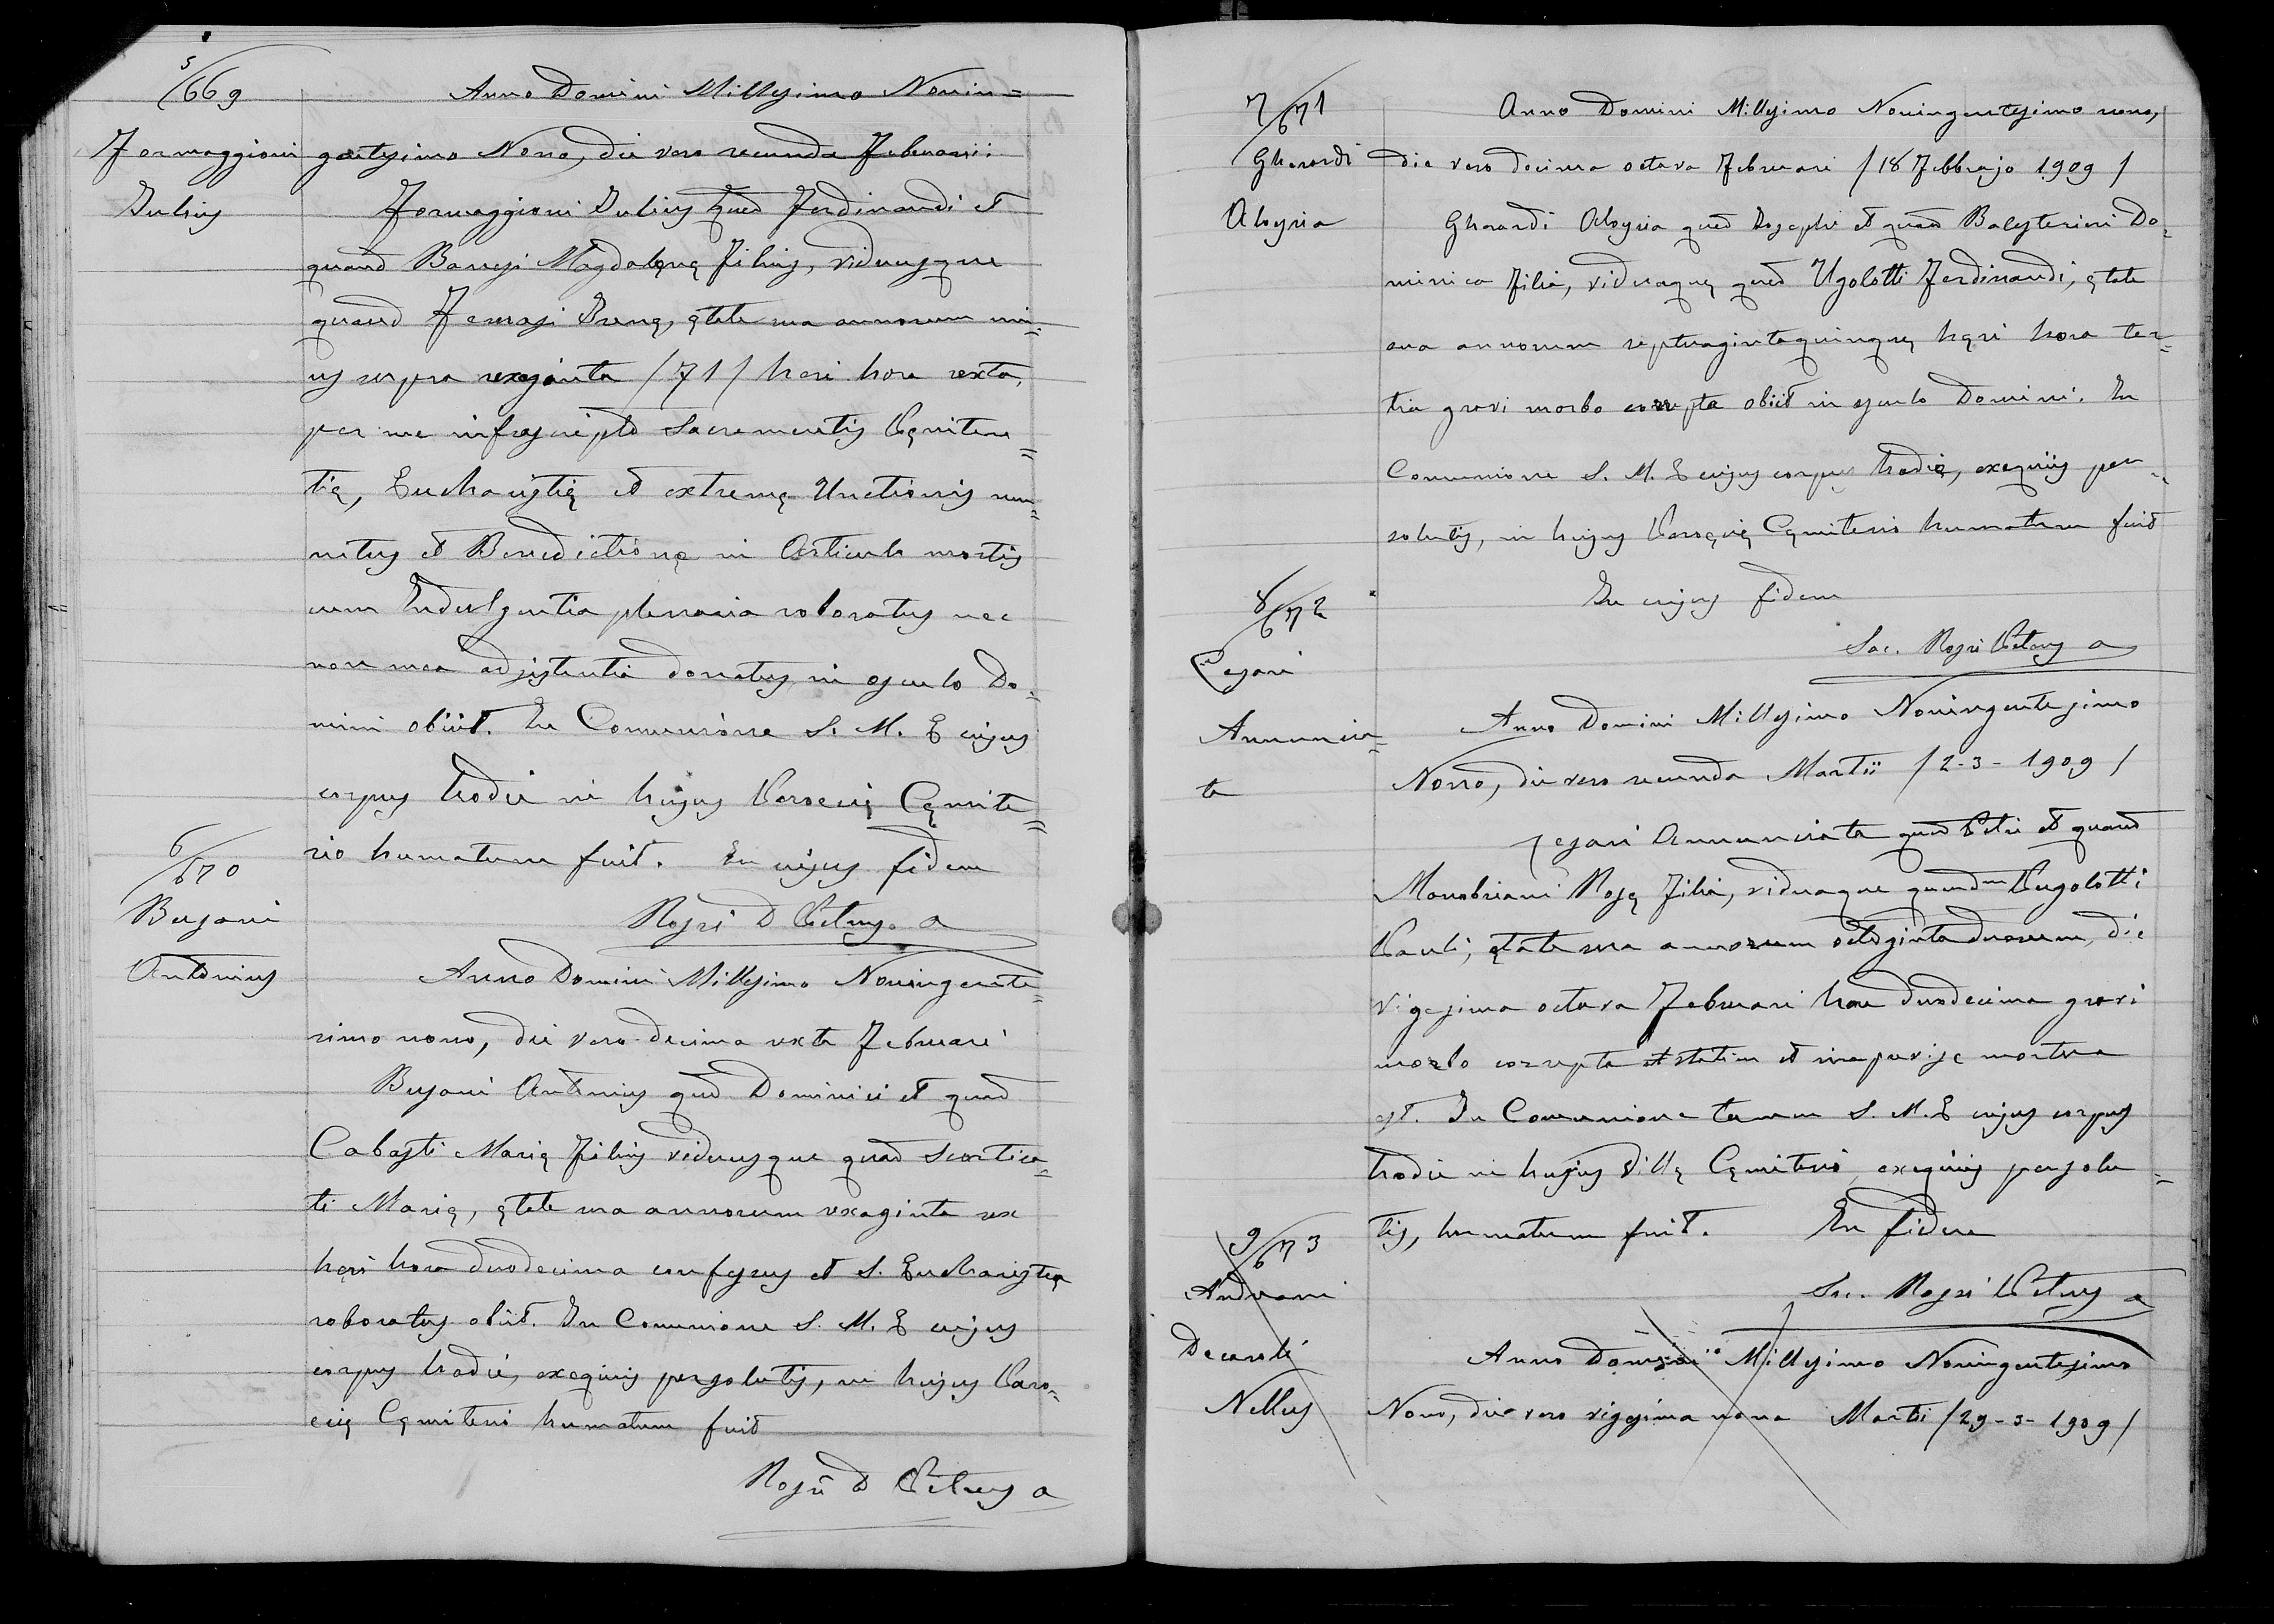 5/669
Formaggioni
Julius
Anno Domini Millesimo Nonin=
gentesimo Nono, die vero secunda Februarii:
Formaggioni Julius qued Ferdinandi et
quand Magdalenę Filius, viduusque
quand Irenę, ętate sua annorum un=
us supra sexaginta /71/ heri hora sexta,
per me infrascripto Sacramentis Pęniten=
tię, Eucharistię et extremę Unctionis mu=
nitus et Benedictione in Articulo mortis
cum Indulgentia plenaria roboratus nec
non mea adsistentia donatus in osculo Do=
mini obiit. In Comunione S. M. E cujus
corpus hodie in hujus Paroecię Cęmite=
rio humatum fuit. In cujus fidem
Rossi D Petrus a
6/670
Busani
Antonius
Anno Domini Millesimo Noningente=
simo nono, die vero decima sexta Februari
Busani Antonius qued Dominici et quand
Cabassi Marię Filius viduusque quand Scortica=
ti Marię, ętate sua annorum sexaginta sex
hęri hora duodecima confessus et S. Eucharistia
roboratus obiit. In Comunione S. M. E cujus
corpus hodie, exequiis persolutis, in hujus Paro=
ecię Cęmiterio humatum fuit
Rossi D Petrus a
7/671
Gherardi
Aloysia
Anno Domini Millesimo Noningentesimo nono,
die vero decima octava Februari /18 Febbrajo 1909/
Gherardi Aloysia qued Josephi et quand Balestrieri Do=
minica Filia, viduaquę qued Ugolotti Ferdinandi, ętate
sua annorum septuagintaquinquę hęri hora ter=
tia gravi morbo correpta obiit in osculo Domini. In
Comunione S. M. E cujus corpus hodie, exequiis per=
solutis, in hujus Paroęcię Cęmiterio humatum fuit
In cujus fidem
Sac. Rossi Petrus a
8/672
Pesari
Annuncia=
ta
Anno Domini Millesimo Noningentesimo
Nono, die vero secunda Martii /2-3-1909/
Pesari Annunciata qued Petri et quand
Rosę Filia, viduaque quendm Pugolotti
Pauli, ętate sua annorum octoginta duorum, die
vigesima octava Februari hora duodecima gravi
morbo correpta et statim et improvise mortua
est. In Comunione tamen S. M. E cujus corpus
hodie in hujus Villę Cęmiterio, exequiis persolu=
tis, humatum fuit. In fidem
Sac. Rossi Petrus a
9/673
Andreani
Decarli
Nellus
Anno Domini Millesimo Noningentesimo
Nono, die vero vigesima nona Martii /29-3-1909/